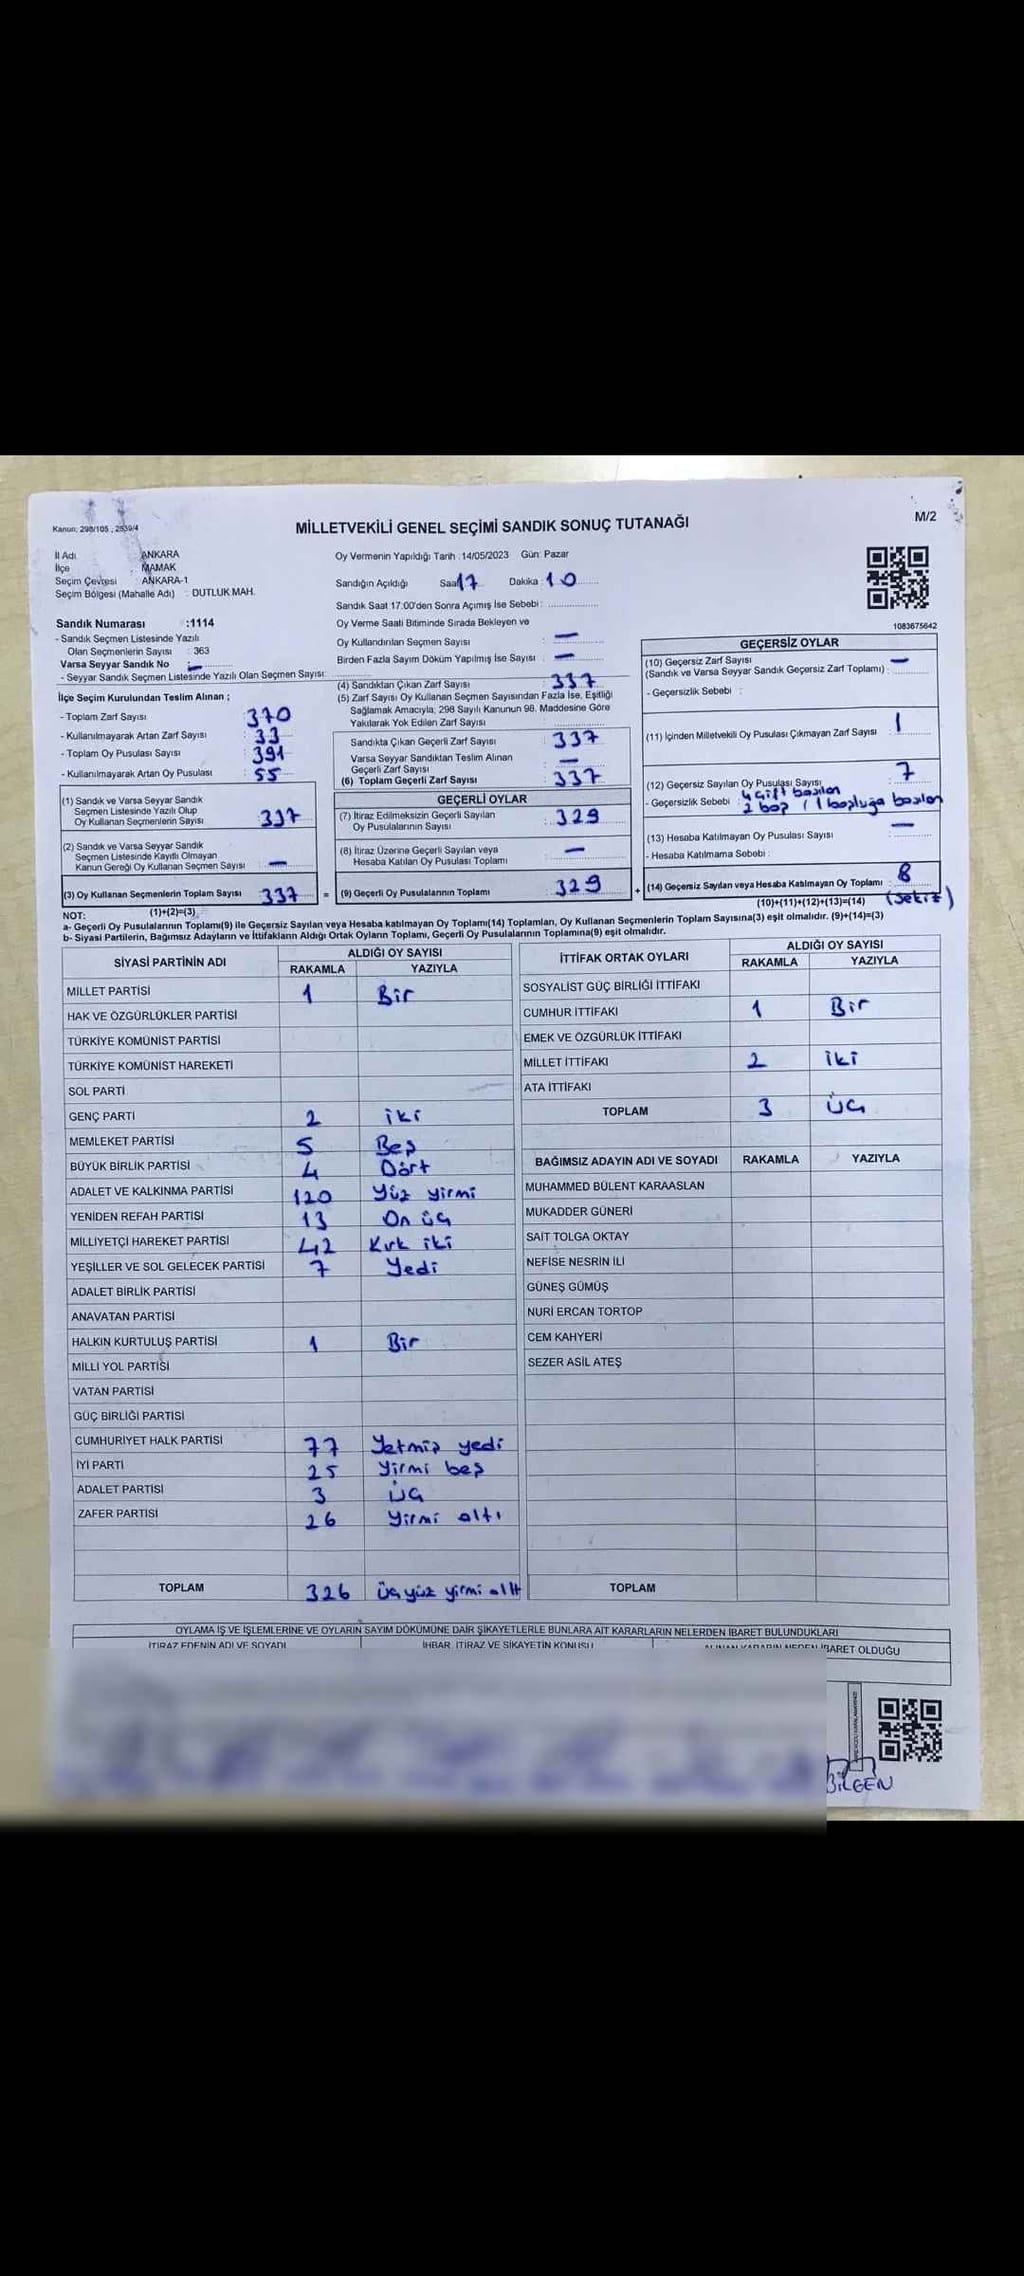 Kanun: 298/105 , 2839/4
MİLLETVEKİLİ GENEL SEÇİMİ SANDIK SONUÇ TUTANAĞI
M/2
İl Adı : ANKARA
İlçe : MAMAK
Seçim Çevresi : ANKARA-1
Seçim Bölgesi (Mahalle Adı) : DUTLUK MAH.
Sandık Numarası :1114
- Sandık Seçmen Listesinde Yazılı
Olan Seçmenlerin Sayısı : 363
Varsa Seyyar Sandık No : —
- Seyyar Sandık Seçmen Listesinde Yazılı Olan Seçmen Sayısı:
İlçe Seçim Kurulundan Teslim Alınan ;
- Toplam Zarf Sayısı : 370
- Kullanılmayarak Artan Zarf Sayısı : 33
- Toplam Oy Pusulası Sayısı : 391
- Kullanılmayarak Artan Oy Pusulası : 55
(1) Sandık ve Varsa Seyyar Sandık
Seçmen Listesinde Yazılı Olup
Oy Kullanan Seçmenlerin Sayısı : 337
(2) Sandık ve Varsa Seyyar Sandık
Seçmen Listesinde Kayıtlı Olmayan
Kanun Gereği Oy Kullanan Seçmen Sayısı : —
(3) Oy Kullanan Seçmenlerin Toplam Sayısı : 337 =
(1)+(2)=(3)
Oy Vermenin Yapıldığı Tarih : 14/05/2023 Gün: Pazar
Sandığın Açıldığı Saat 17 Dakika : 10
Sandık Saat 17:00'den Sonra Açımış İse Sebebi :
Oy Verme Saati Bitiminde Sırada Bekleyen ve
Oy Kullandırılan Seçmen Sayısı : —
Birden Fazla Sayım Döküm Yapılmış İse Sayısı : —
(4) Sandıktan Çıkan Zarf Sayısı : 337
(5) Zarf Sayısı Oy Kullanan Seçmen Sayısından Fazla İse, Eşitliği
Sağlamak Amacıyla, 298 Sayılı Kanunun 98. Maddesine Göre
Yakılarak Yok Edilen Zarf Sayısı :
Sandıkta Çıkan Geçerli Zarf Sayısı : 337
Varsa Seyyar Sandıktan Teslim Alınan
Geçerli Zarf Sayısı : —
(6) Toplam Geçerli Zarf Sayısı : 337
GEÇERLİ OYLAR
(7) İtiraz Edilmeksizin Geçerli Sayılan
Oy Pusulalarının Sayısı : 329
(8) İtiraz Üzerine Geçerli Sayılan veya
Hesaba Katılan Oy Pusulası Toplamı : —
(9) Geçerli Oy Pusulalarının Toplamı : 329 +
1083675642
GEÇERSİZ OYLAR
(10) Geçersiz Zarf Sayısı : —
(Sandık ve Varsa Seyyar Sandık Geçersiz Zarf Toplamı) :
- Geçersizlik Sebebi :
(11) İçinden Milletvekili Oy Pusulası Çıkmayan Zarf Sayısı : 1
(12) Geçersiz Sayılan Oy Pusulası Sayısı : 7
- Geçersizlik Sebebi : 4 çift basılan
2 boş / 1 boşluğa basılan
(13) Hesaba Katılmayan Oy Pusulası Sayısı : —
- Hesaba Katılmama Sebebi :
(14) Geçersiz Sayılan veya Hesaba Katılmayan Oy Toplamı : 8
(10)+(11)+(12)+(13)=(14) (Sekiz)
NOT:
a- Geçerli Oy Pusulalarının Toplamı(9) ile Geçersiz Sayılan veya Hesaba katılmayan Oy Toplamı(14) Toplamları, Oy Kullanan Seçmenlerin Toplam Sayısına(3) eşit olmalıdır. (9)+(14)=(3)
b- Siyasi Partilerin, Bağımsız Adayların ve İttifakların Aldığı Ortak Oyların Toplamı, Geçerli Oy Pusulalarının Toplamına(9) eşit olmalıdır.
SİYASİ PARTİNİN ADI ALDIĞI OY SAYISI
RAKAMLA YAZIYLA
MİLLET PARTİSİ 1 Bir
HAK VE ÖZGÜRLÜKLER PARTİSİ
TÜRKİYE KOMÜNİST PARTİSİ
TÜRKİYE KOMÜNİST HAREKETİ
SOL PARTİ
GENÇ PARTİ 2 iki
MEMLEKET PARTİSİ 5 Beş
BÜYÜK BİRLİK PARTİSİ 4 Dört
ADALET VE KALKINMA PARTİSİ 120 Yüz yirmi
YENİDEN REFAH PARTİSİ 13 On üç
MİLLİYETÇİ HAREKET PARTİSİ 42 Kırk iki
YEŞİLLER VE SOL GELECEK PARTİSİ 7 Yedi
ADALET BİRLİK PARTİSİ
ANAVATAN PARTİSİ
HALKIN KURTULUŞ PARTİSİ 1 Bir
MİLLİ YOL PARTİSİ
VATAN PARTİSİ
GÜÇ BİRLİĞİ PARTİSİ
CUMHURİYET HALK PARTİSİ 77 Yetmiş yedi
İYİ PARTİ 25 Yirmi beş
ADALET PARTİSİ 3 üç
ZAFER PARTİSİ 26 Yirmi altı
TOPLAM 326 üçyüz yirmi altı
İTTİFAK ORTAK OYLARI ALDIĞI OY SAYISI
RAKAMLA YAZIYLA
SOSYALİST GÜÇ BİRLİĞİ İTTİFAKI
CUMHUR İTTİFAKI 1 Bir
EMEK VE ÖZGÜRLÜK İTTİFAKI
MİLLET İTTİFAKI 2 iki
ATA İTTİFAKI
TOPLAM 3 üç
BAĞIMSIZ ADAYIN ADI VE SOYADI RAKAMLA YAZIYLA
MUHAMMED BÜLENT KARAASLAN
MUKADDER GÜNERİ
SAİT TOLGA OKTAY
NEFİSE NESRİN İLİ
GÜNEŞ GÜMÜŞ
NURİ ERCAN TORTOP
CEM KAHYERİ
SEZER ASİL ATEŞ
TOPLAM
OYLAMA İŞ VE İŞLEMLERİNE VE OYLARIN SAYIM DÖKÜMÜNE DAİR ŞİKAYETLERLE BUNLARA AİT KARARLARIN NELERDEN İBARET BULUNDUKLARI
İTİRAZ EDENİN ADI VE SOYADI İHBAR, İTİRAZ VE ŞİKAYETİN KONUSU ALINAN KARARIN NEDEN İBARET OLDUĞU
BİLGEN